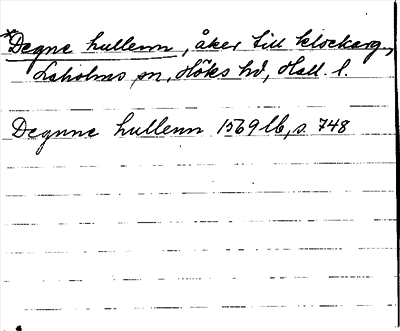 *Degne hullenn, åker till klockarg,
Laholms sn, Höks hd, Hall. l.
Degnne hullenn 1569 lb, s. 748